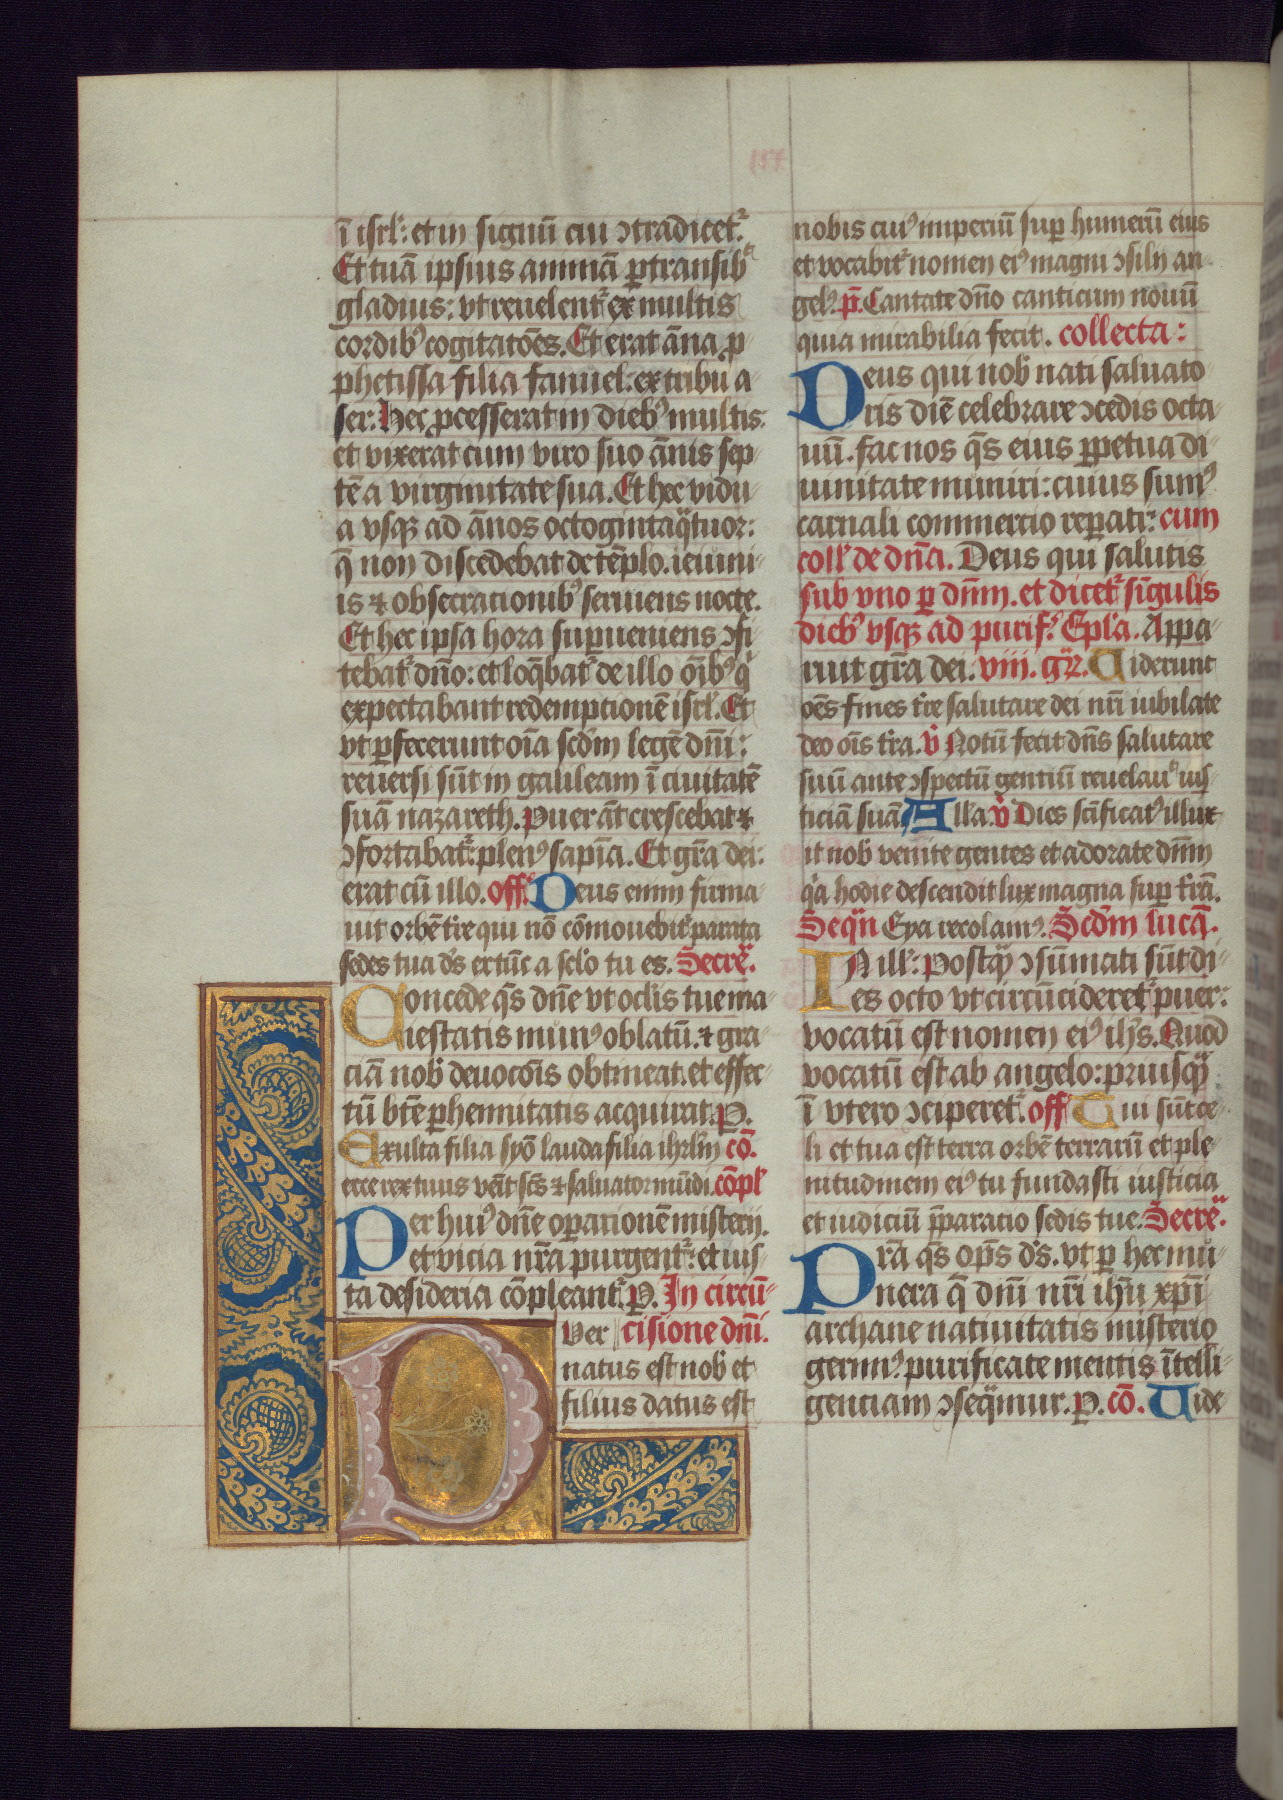 ī isrl': et in signū cui ↄtradicet᷑.
Et tuā ipsius animā ꝑtransibᵗ
gladius: vt reuelent᷑ ex multis
cordibꝰ cogitatōes. Et erat āna ꝓ
phetissa filia fanuel: ex tribu a
ser: Hec ꝓcesserat in diebꝰ multis:
et vixerat cum viro suo ānis sep
tē a virginitate sua. Et hec vidu
a vsqꝫ ad ānos octogintaqͣtuor:
q̄ non discedebat de tēplo. ieiuni
is ⁊ obsecrationibꝰ seruiens nocte.
Et hec ipsa hora suꝑueniens ↄfi
tebat᷑ dn̄o: et loq̄bat᷑ de illo oībꝰ qͥ
expectabant redemptionē isrl'. Et
vt ꝑfecerunt oīa scd̄m legē dn̄i:
reuersi sūt in galileam ī ciuitatē
suā nazareth. Puer āt crescebat ⁊
ↄfortabat᷑: plenꝰ sapīa. Et grā dei:
erat cū illo. off. Deus enim firma
uit orbē tr̄e qui nō cōmouebit᷑ parata
sedes tua ds̄ ex tūc a sclo tu es. Secrē.
Concede qs̄ dn̄e vt oclis tue ma
iestatis munꝰ oblatū. ⁊ gra
ciā nob' deuocōis obtineat. et effec
tū btē ꝑhennitatis acquirat. P.
Exulta filia syō lauda filia ihrlm̄ cō.
ecce rex tuus venīt scs̄ ⁊ saluator mūdi. cōpl'
Per huiꝰ dn̄e oꝑationē misterij.
et vicia nr̄a purgent᷑: et ius
ta desideria cōpleant᷑. P. In circū
Puer cisione dn̄i.
natus est nob' et
filius datus est
nobis cuiꝰ imperiū suꝑ humerū eius
et vocabit᷑ nomen eiꝰ magni ↄsilij an
gelꝰ. p̄. Cantate dn̄o canticum nouū
quia mirabilia fecit. collecta:
Deus qui nob' nati saluato
ris diē celebrare ↄcedis octa
uū. fac nos qs̄ eius ꝑpetua di
uinitate muniri: cuius sumꝰ
carnali commercio reꝑati: cum
coll' de dn̄a. Deus qui salutis
sub vno ꝑ dn̄m. et dicet᷑ sīgulis
diebꝰ vsqꝫ ad purif'. Epl'a. Appa
ruit grā dei. viii. gr̄. Uiderunt
oēs fines tr̄e salutare dei nr̄i iubilate
deo oīs tr̄a. v̄ Notū fecit dn̄s salutare
suū ante ↄspectū gentiū reuelauᵗ ius
ticiā suā. Alla. v̄ Dies scīficatꝰ illux
it nob' venite gentes et adorate dn̄m
qͥa hodie descendit lux magna suꝑ tr̄ā.
Seqn̄ Eya recolamꝰ. Scd̄m lucā.
IN ill': Postqͣ ↄsūmati sūt di
es octo vt circūcideret᷑ puer:
vocatū est nomen eiꝰ ihs̄. Quod
vocatū est ab angelo: priusqͣ
ī vtero ↄciperet᷑. off Tui sūt ce
li et tua est terra orbē terrarū et ple
nitudinem eiꝰ tu fundasti iusticia
et iudiciū p̄paratio sedis tue. Secrē.
Prā qs̄ oꝑs ds̄. vt ꝑ hec mu
nera q̄ dn̄i nr̄i ihū xp̄i
archane natiuitatis misterio
gerimꝰ: purificate mentis ītelli
genciam ↄseqͣmur. P. cō. Uide